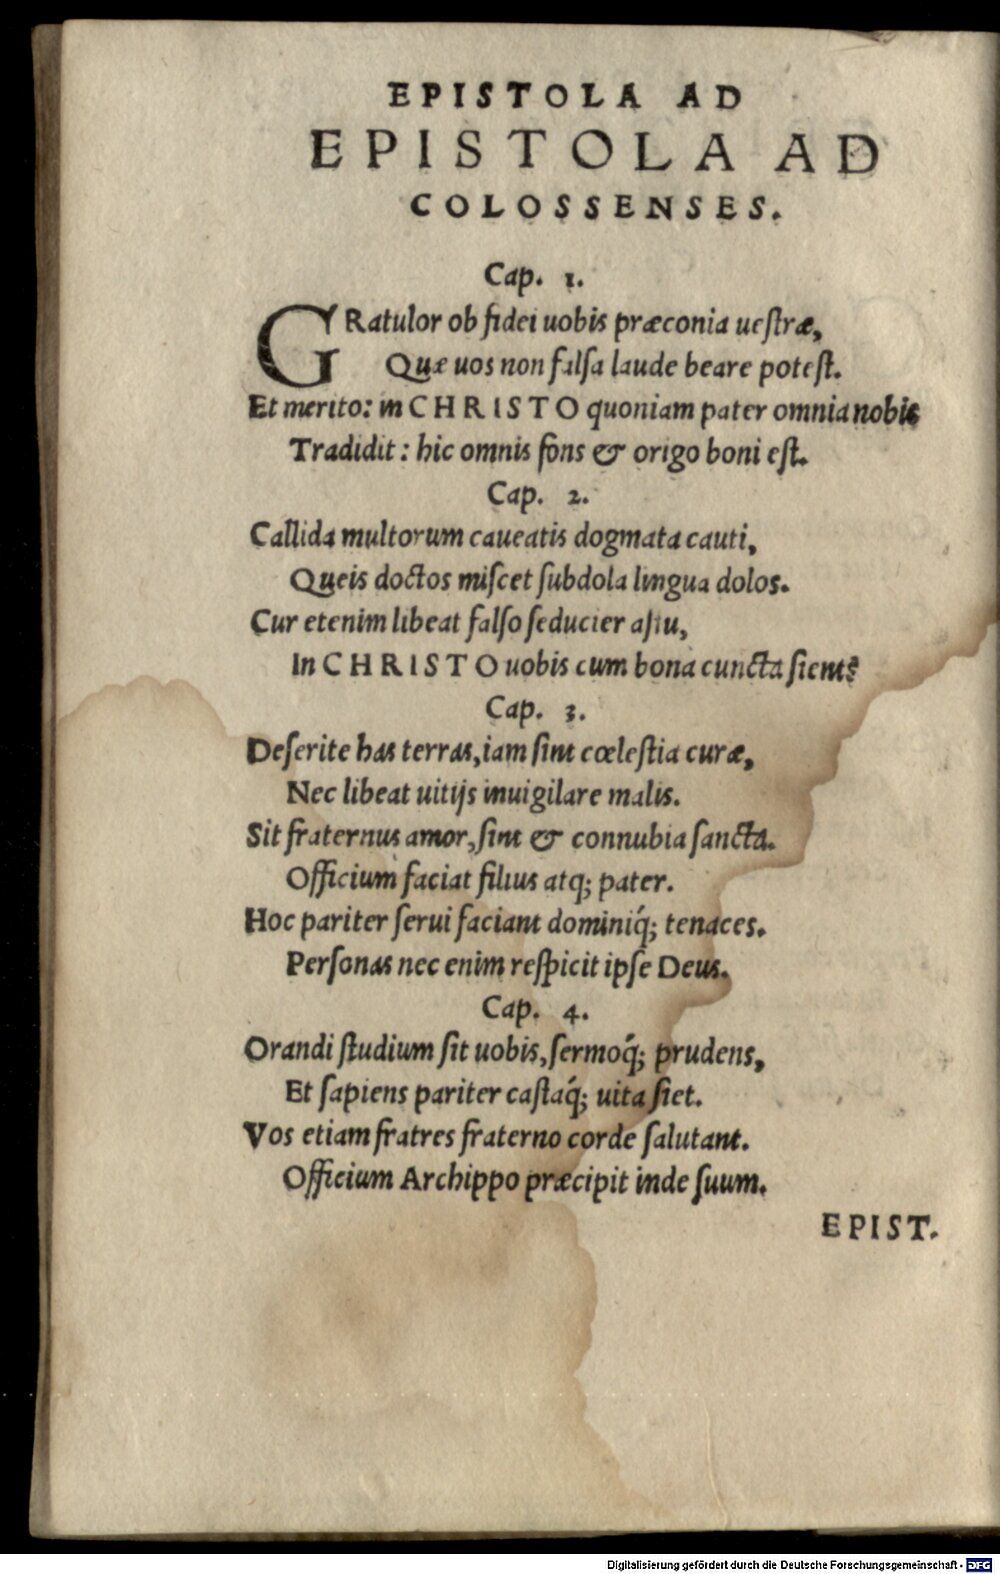 EPISTOLA AD
EPISTOLA AD
COLOSSENSES.
Cap. 1.
GRatulor ob fidei uobis præconia ueſtræ,
Quæ uos non falſa laude beare poteſt.
Et merito: in CHRISTO quoniam pater omnia nobis
Tradidit: hic omnis fons & origo boni eſt.
Cap. 2.
Callida multorum caueatis dogmata cauti,
Queis doctos miſcet ſubdola lingua dolos.
Cur etenim libeat falſo ſeducier aſtu,
In CHRISTO uobis cum bona cuncta ſient?
Cap. 3.
Deſerite has terras, iam ſint cœleſtia curæ,
Nec libeat uitijs inuigilare malis.
Sit fraternus amor, ſint & connubia ſancta.
Officium faciat filius atq; pater.
Hoc pariter ſerui faciant dominiq́; tenaces.
Perſonas nec enim reſpicit ipſe Deus.
Cap. 4.
Orandi ſtudium ſit uobis, ſermoq́; prudens,
Et ſapiens pariter caſtaq́; uita ſiet.
Vos etiam fratres fraterno corde ſalutant.
Officium Archippo præcipit inde ſuum.
EPIST.
Digitalisierung gefördert durch die Deutsche Forschungsgemeinschaft - DFG